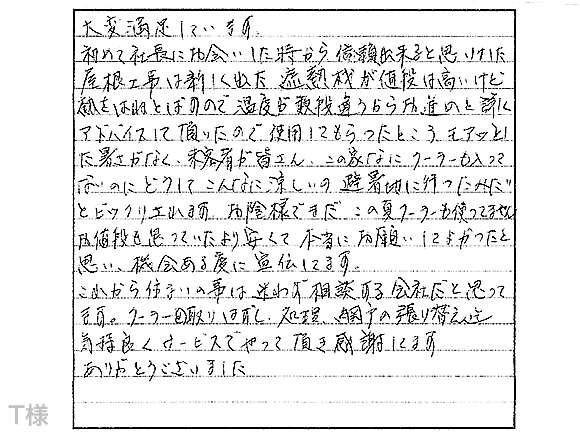 大変満足しています。
初めて社長にお会いした時から信頼出来ると思いました
屋根工事は新しく出た遮熱材が値段は高いけど
熱をはねとばすので温度が数段違うからお進めと詳しく
アドバイスして頂いたので使用してもらったところ モアッとし
た暑さがなく、来客者が皆さん、この家なにクーラーも入って
ないのにどうしてこんなに涼しいの 避暑地に行ったみたい
とビックリされます お陰様でまだこの夏クーラーも使ってません
お値段も思っていたより安くて 本当にお願いしてよかったと
思い、機会ある度に宣伝してます。
これから住まいの事は迷わず相談する会社だと思って
ます。クーラーの取りはずし、処理、網戸の張り替えを
気持良くサービスでやって頂き感謝してます
ありがとうございました
T様